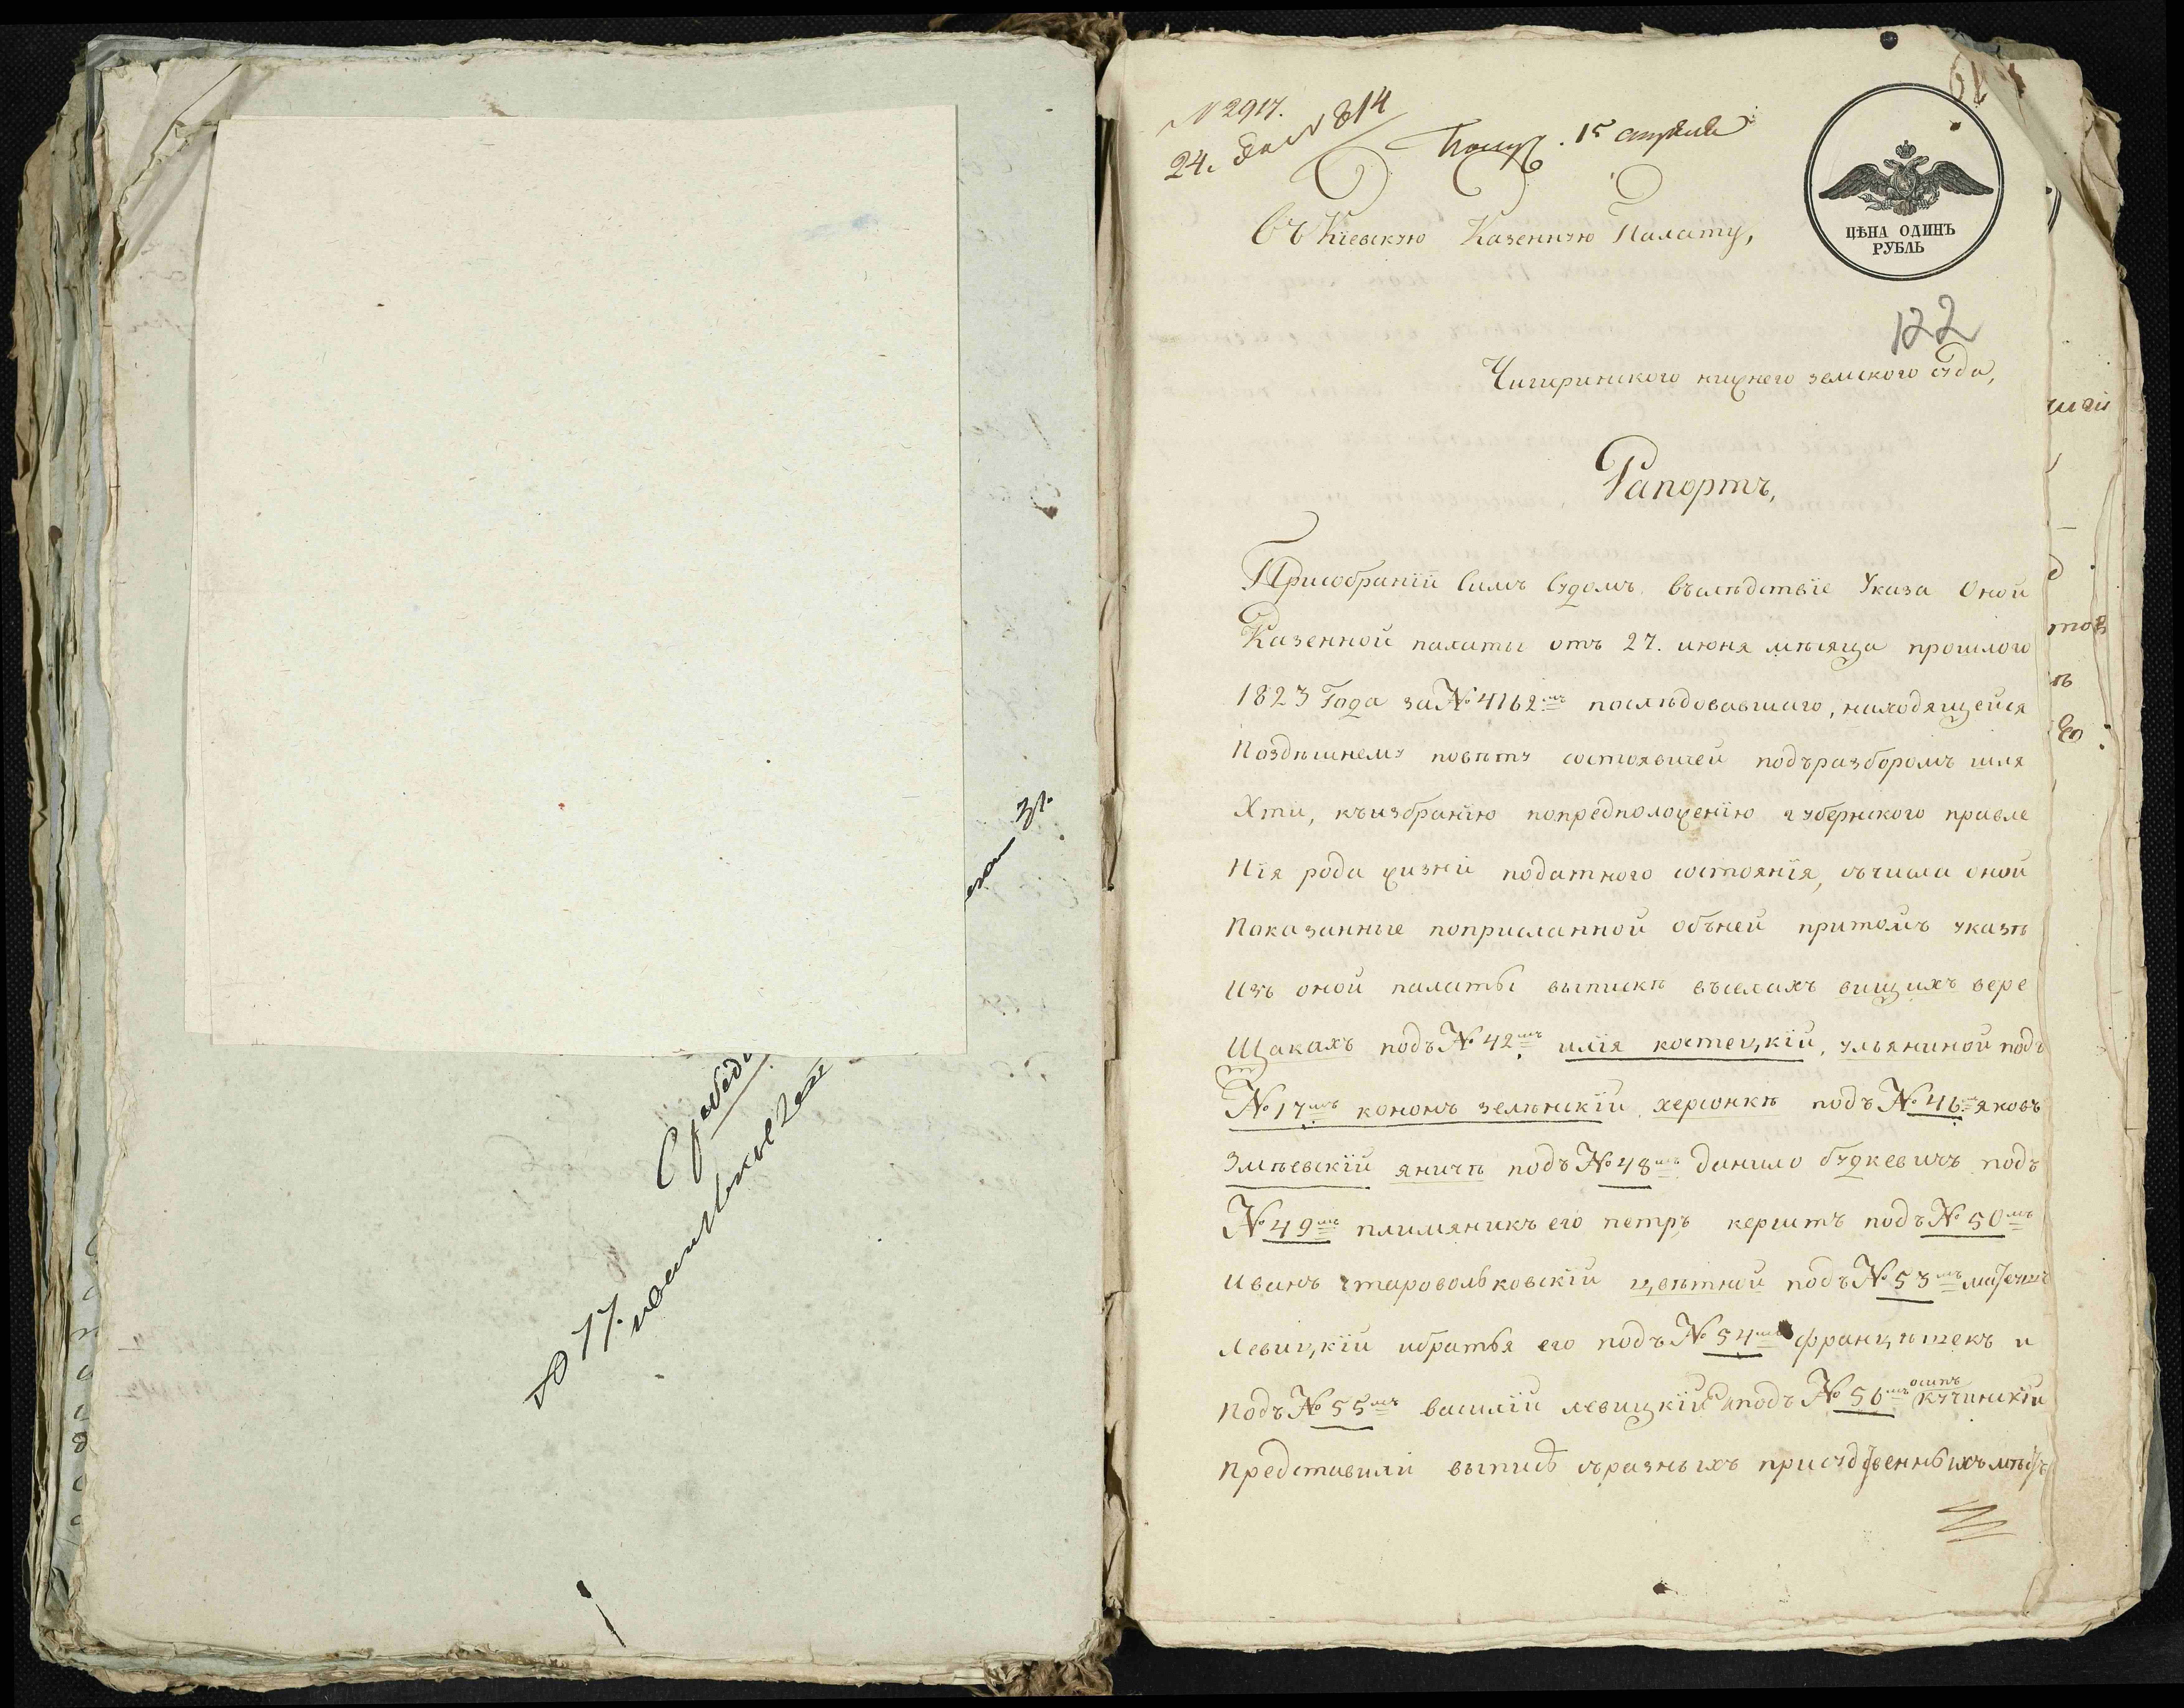 № 2917.
24.
№ 814
15 апреля
122
ЦѢНА ОДИНЪ
РУБЛЬ
Въ Кіевскую Казенную Палату,
Чигиринского нижнего земского суда,
Рапортъ,
Присобраніи Симъ Судомъ, въслѣдствіе Указа Оной
Казенной палаты отъ 27. июня мѣсяца прошлого
1823 Года за № 4162мъ послѣдовавшаго, находящейся
Поздѣшнему повѣту состоявшей подъразборомъ шля
Хти, къизбранію попредположенію губернского правле
Нія рода жизни податного состоянія, съчисла оной
Показанные поприсланной объней притомъ указѣ
Изъ оной палаты выпискѣ въселахъ вищихъ вере
Щакахъ подъ № 42мъ илія костецкій, ульяниной подъ
№ 17мъ кононъ зелѣнскій херсонкѣ подъ № 46мъ яковъ
Змѣевскій яничѣ подъ № 48мъ данило будкевичъ подъ
№ 49мъ плимяникъ его петръ кершть подъ № 50мъ
Иванъ старовольковскій цвѣтной подъ № 53мъ
Левицкій ибратья его подъ № 54мъ францѣшекъ и
Подъ № 55мъ василій левицкій иподъ № 56мъ осипъ кучинскій
Представили выписѣ съразныхъ присудственныхъ мѣстъ